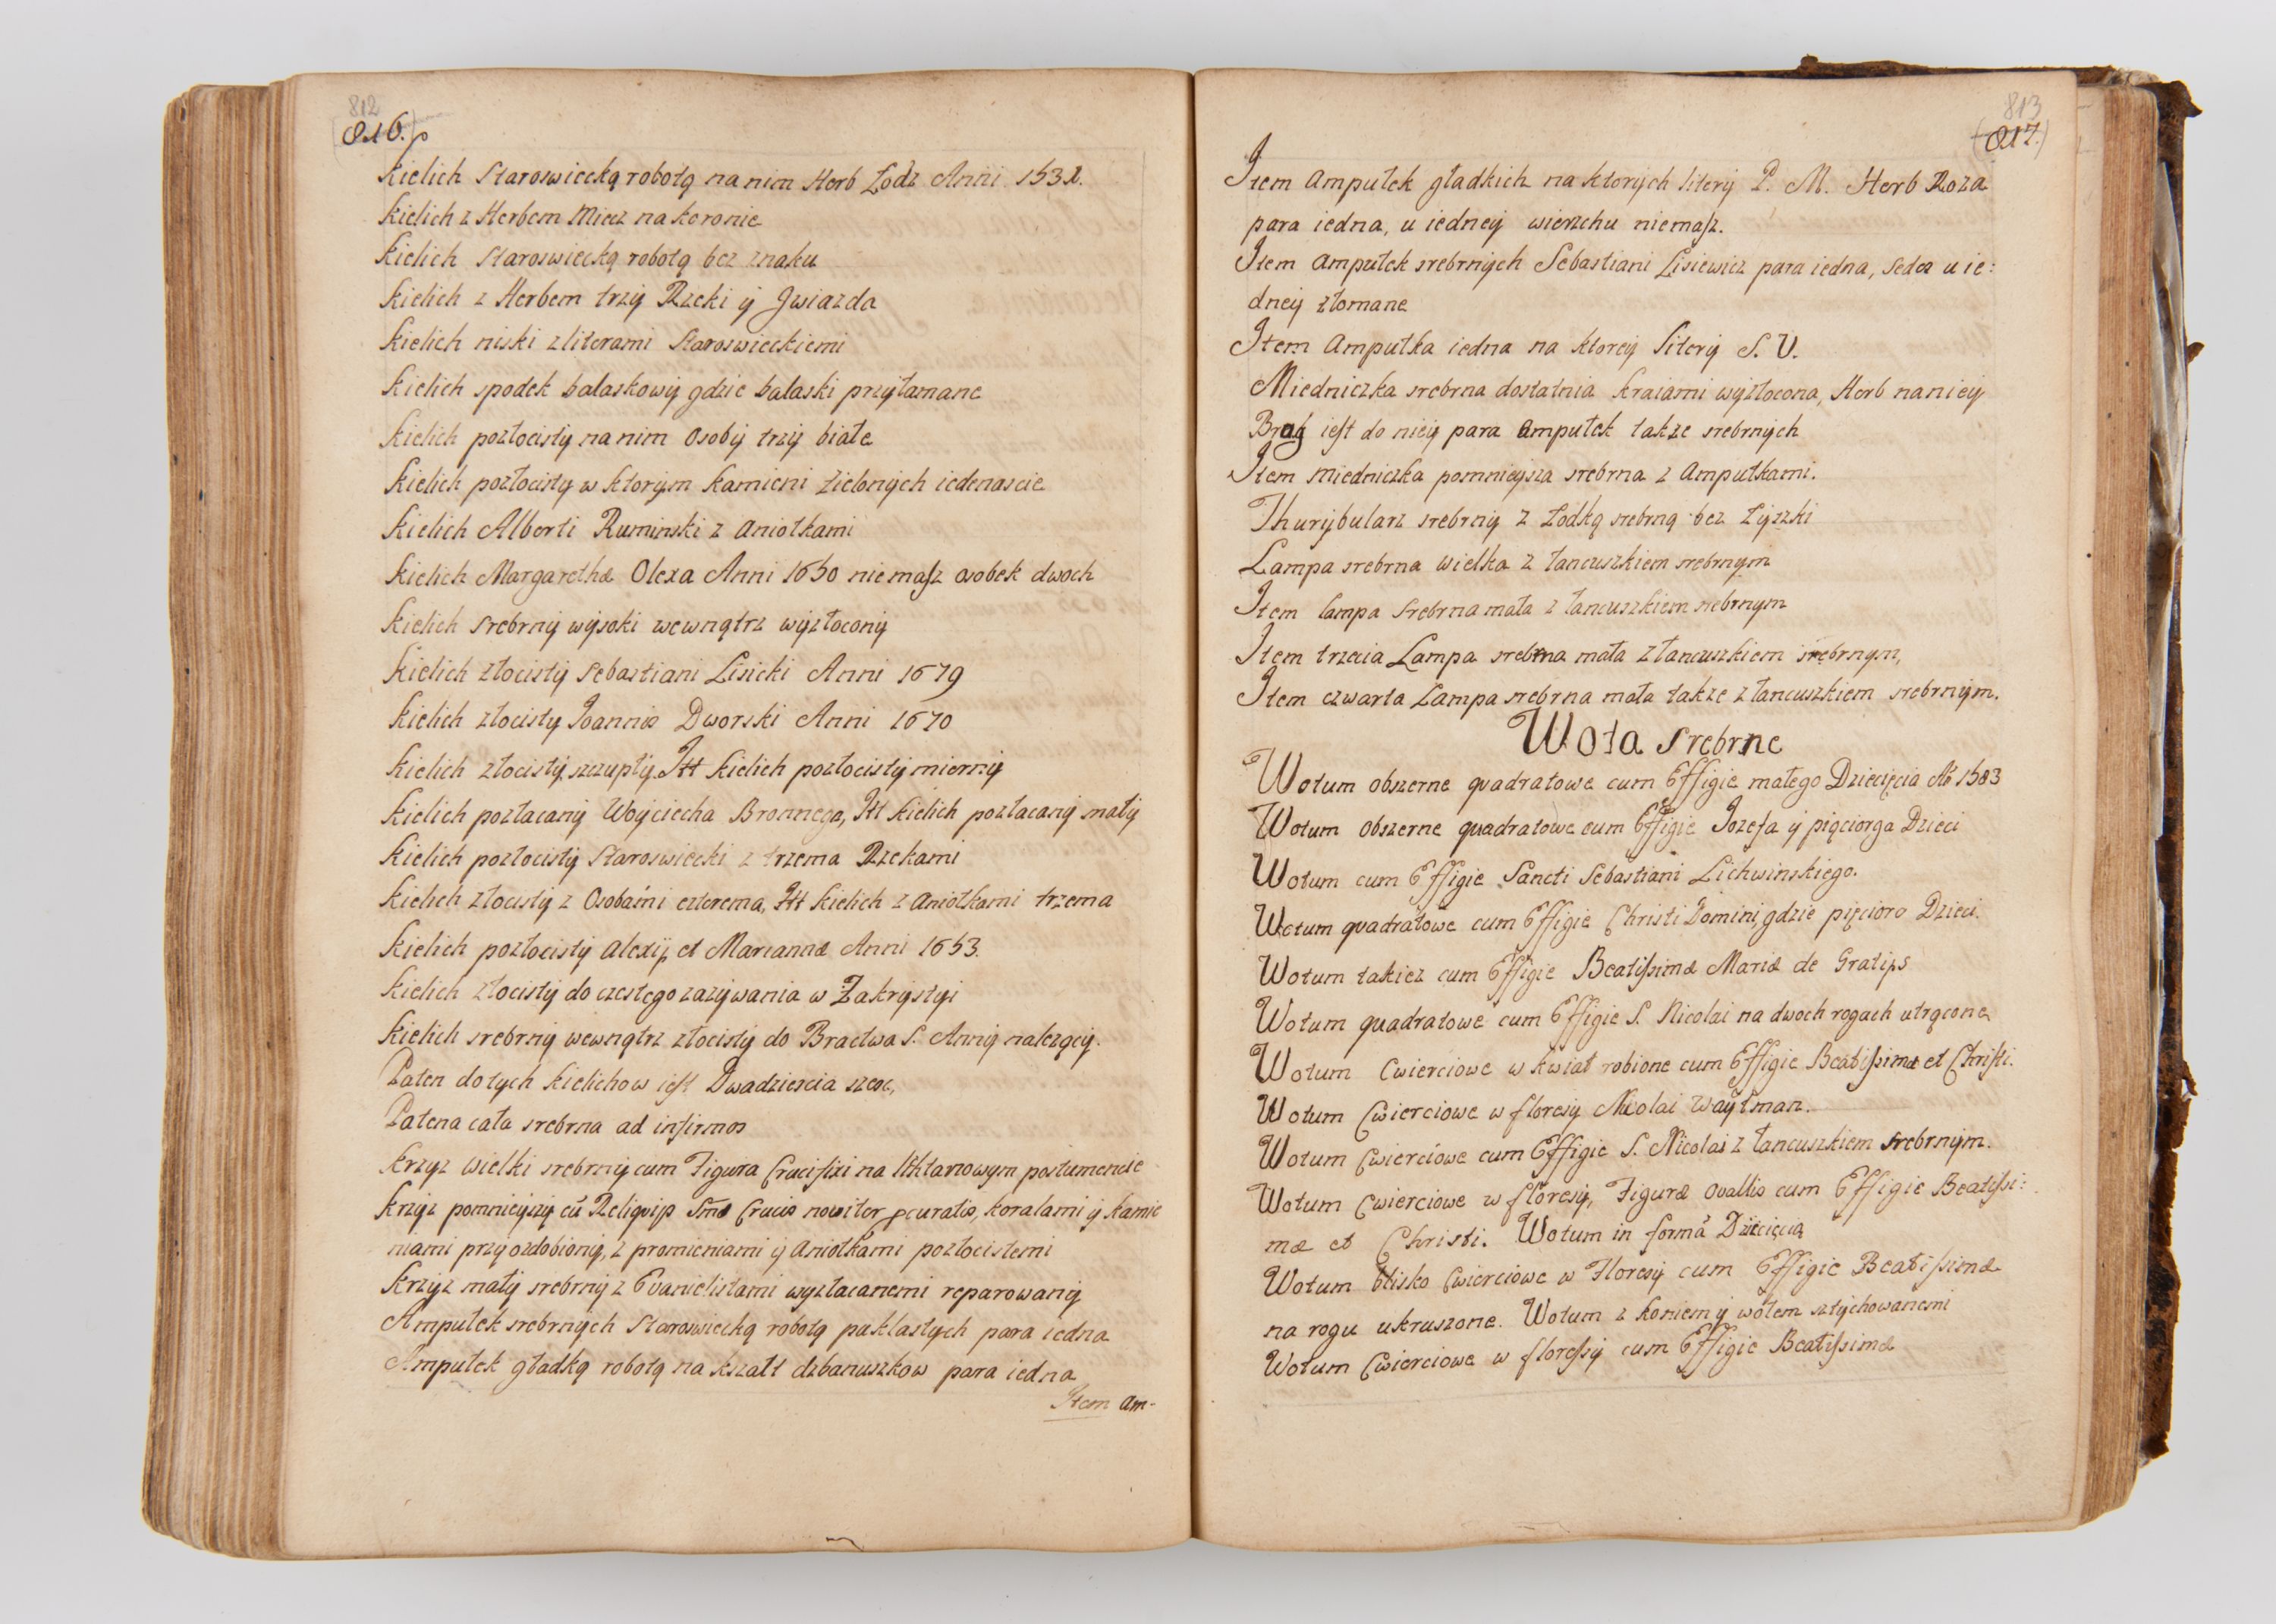 812
816.
Kielich Staroswiecką robotą na nim Herb Lodz Anni 1532.
Kielich z Herbem Miecz na koronie
Kielich Staroswiecką robotą bez znaku
Kielich z Herbem trzÿ Rzeki ÿ Gwiazda
Kielich niski z literami Staroswieckiemi
Kielich spodek balaskowÿ gdzie balaski przÿłamane
Kielich pozłocistÿ na nim Osobÿ trzÿ białe
Kielich pozłocistÿ w ktorÿm kamieni zielonÿch iedenascie
Kielich Alberti Ruminski z Aniołkami
Kielich Margarethæ Olexa Anni 1650 niemasz osobek dwoch
Kielich Srebrnÿ wÿsoki wewnątrz wÿzłoconÿ
Kielich złocistÿ Sebastiani Lisicki Anni 1679
Kielich złocistÿ Joannis Dworski Anni 1670
Kielich złocistÿ szczupłÿ, Itt Kielich pozłocistÿ miernÿ
Kielich pozłacanÿ Woÿciecha Bronnego, Itt Kielich pozłacanÿ małÿ
Kielich pozłocistÿ Staroswiecki z trzema Rzekami
Kielich złocistÿ z Osobami czterema, Itt Kielich z Aniołkami trzema
Kielich pozłocistÿ Alexÿ et Mariannæ Anni 1653.
Kielich złocistÿ do czestego zazÿwania w Zakrÿstÿi
Kielich srebrnÿ wewnątrz złocistÿ do Bractwa S. Annÿ nalezącÿ.
Paten do tÿch Kielichow iest Dwadziescia szesc,
Patena cała srebrna ad infirmos
Krzÿz Wielki srebrnÿ cum Figura Crucifixi na lichtarzowÿm postumencie
Krzÿz pomnieÿszÿ cū Reliquÿs Smæ Crucis noviter procuratis, koralami ÿ kamie
niami przÿozdobionÿ, z promieniami ÿ Aniołkami pozłocistemi
Krzÿz małÿ srebrnÿ z Evanielistami wÿzłacanemi reparowanÿ
Ampułek srebrnÿch Staroswiecką robotą puklastÿch para iedna
Ampułek gładką robotą na kszałt dzbanuszkow para iedna
Item Am-
813
817.
Item Ampułek gładkich na ktorÿch literÿ P. M. Herb Roza
para iedna, u iedneÿ wierzchu niemasz.
Item Ampułek srebrnÿch Sebastiani Lisiewicz para iedna, Sedes u ie:
dneÿ złomane
Item Ampułka iedna na ktoreÿ literÿ S. V.
Miedniczka srebrna dostatnia kraiami wÿzłocona, Herb na nieÿ
Brog iest do nieÿ para Ampułek takze srebrnÿch
Item Miedniczka pomnieÿsza srebrna z Ampułkami.
Thurÿbularz srebrnÿ z Łodką srebrną bez Łÿszki
Lampa srebrna wielka z łancuszkiem srebrnÿm
Item lampa Srebrna mała z łancuszkiem srebrnÿm
Item trzecia Lampa srebrna mała z łancuszkiem srebrnÿm,
Item czwarta Lampa srebrna mała takze z łancuszkiem srebrnÿm.
Wota Srebrne
Wotum obszerne quadratowe cum Effigie małego Dziecięcia Aō 1583
Wotum obszerne quadratowe cum Effigie Jozefa ÿ pięciorga Dzieci
Wotum cum Effigie Sancti Sebastiani Lichwinskiego.
Wotum quadratowe cum Effigie Christi Domini, gdzie pięcioro Dzieci.
Wotum takiez cum Effigie Beatissimæ Mariæ de Gratÿs
Wotum quadratowe cum Effigie S. Nicolai na dwoch rogach utrącone
Wotum Cwierciowe w kwiat robione cum Effigie Beatissimæ et Christi.
Wotum Cwierciowe w floresÿ Nicolai Waÿtman.
Wotum Cwierciowe cum Effigie S. Nicolai z łancuszkiem srebrnÿm.
Wotum Cwierciowe w floresÿ, Figuræ Ovallis cum Effigie Beatissi:
mæ et Christi. Wotum in formâ Dziecięcia
Wotum blisko Cwierciowe w Floresÿ cum Effigie Beatissimæ
na rogu ukruszone. Wotum z koniem ÿ wołem sztÿchowanemi
Wotum Cwierciowe w floressÿ cum Effigie Beatissimæ